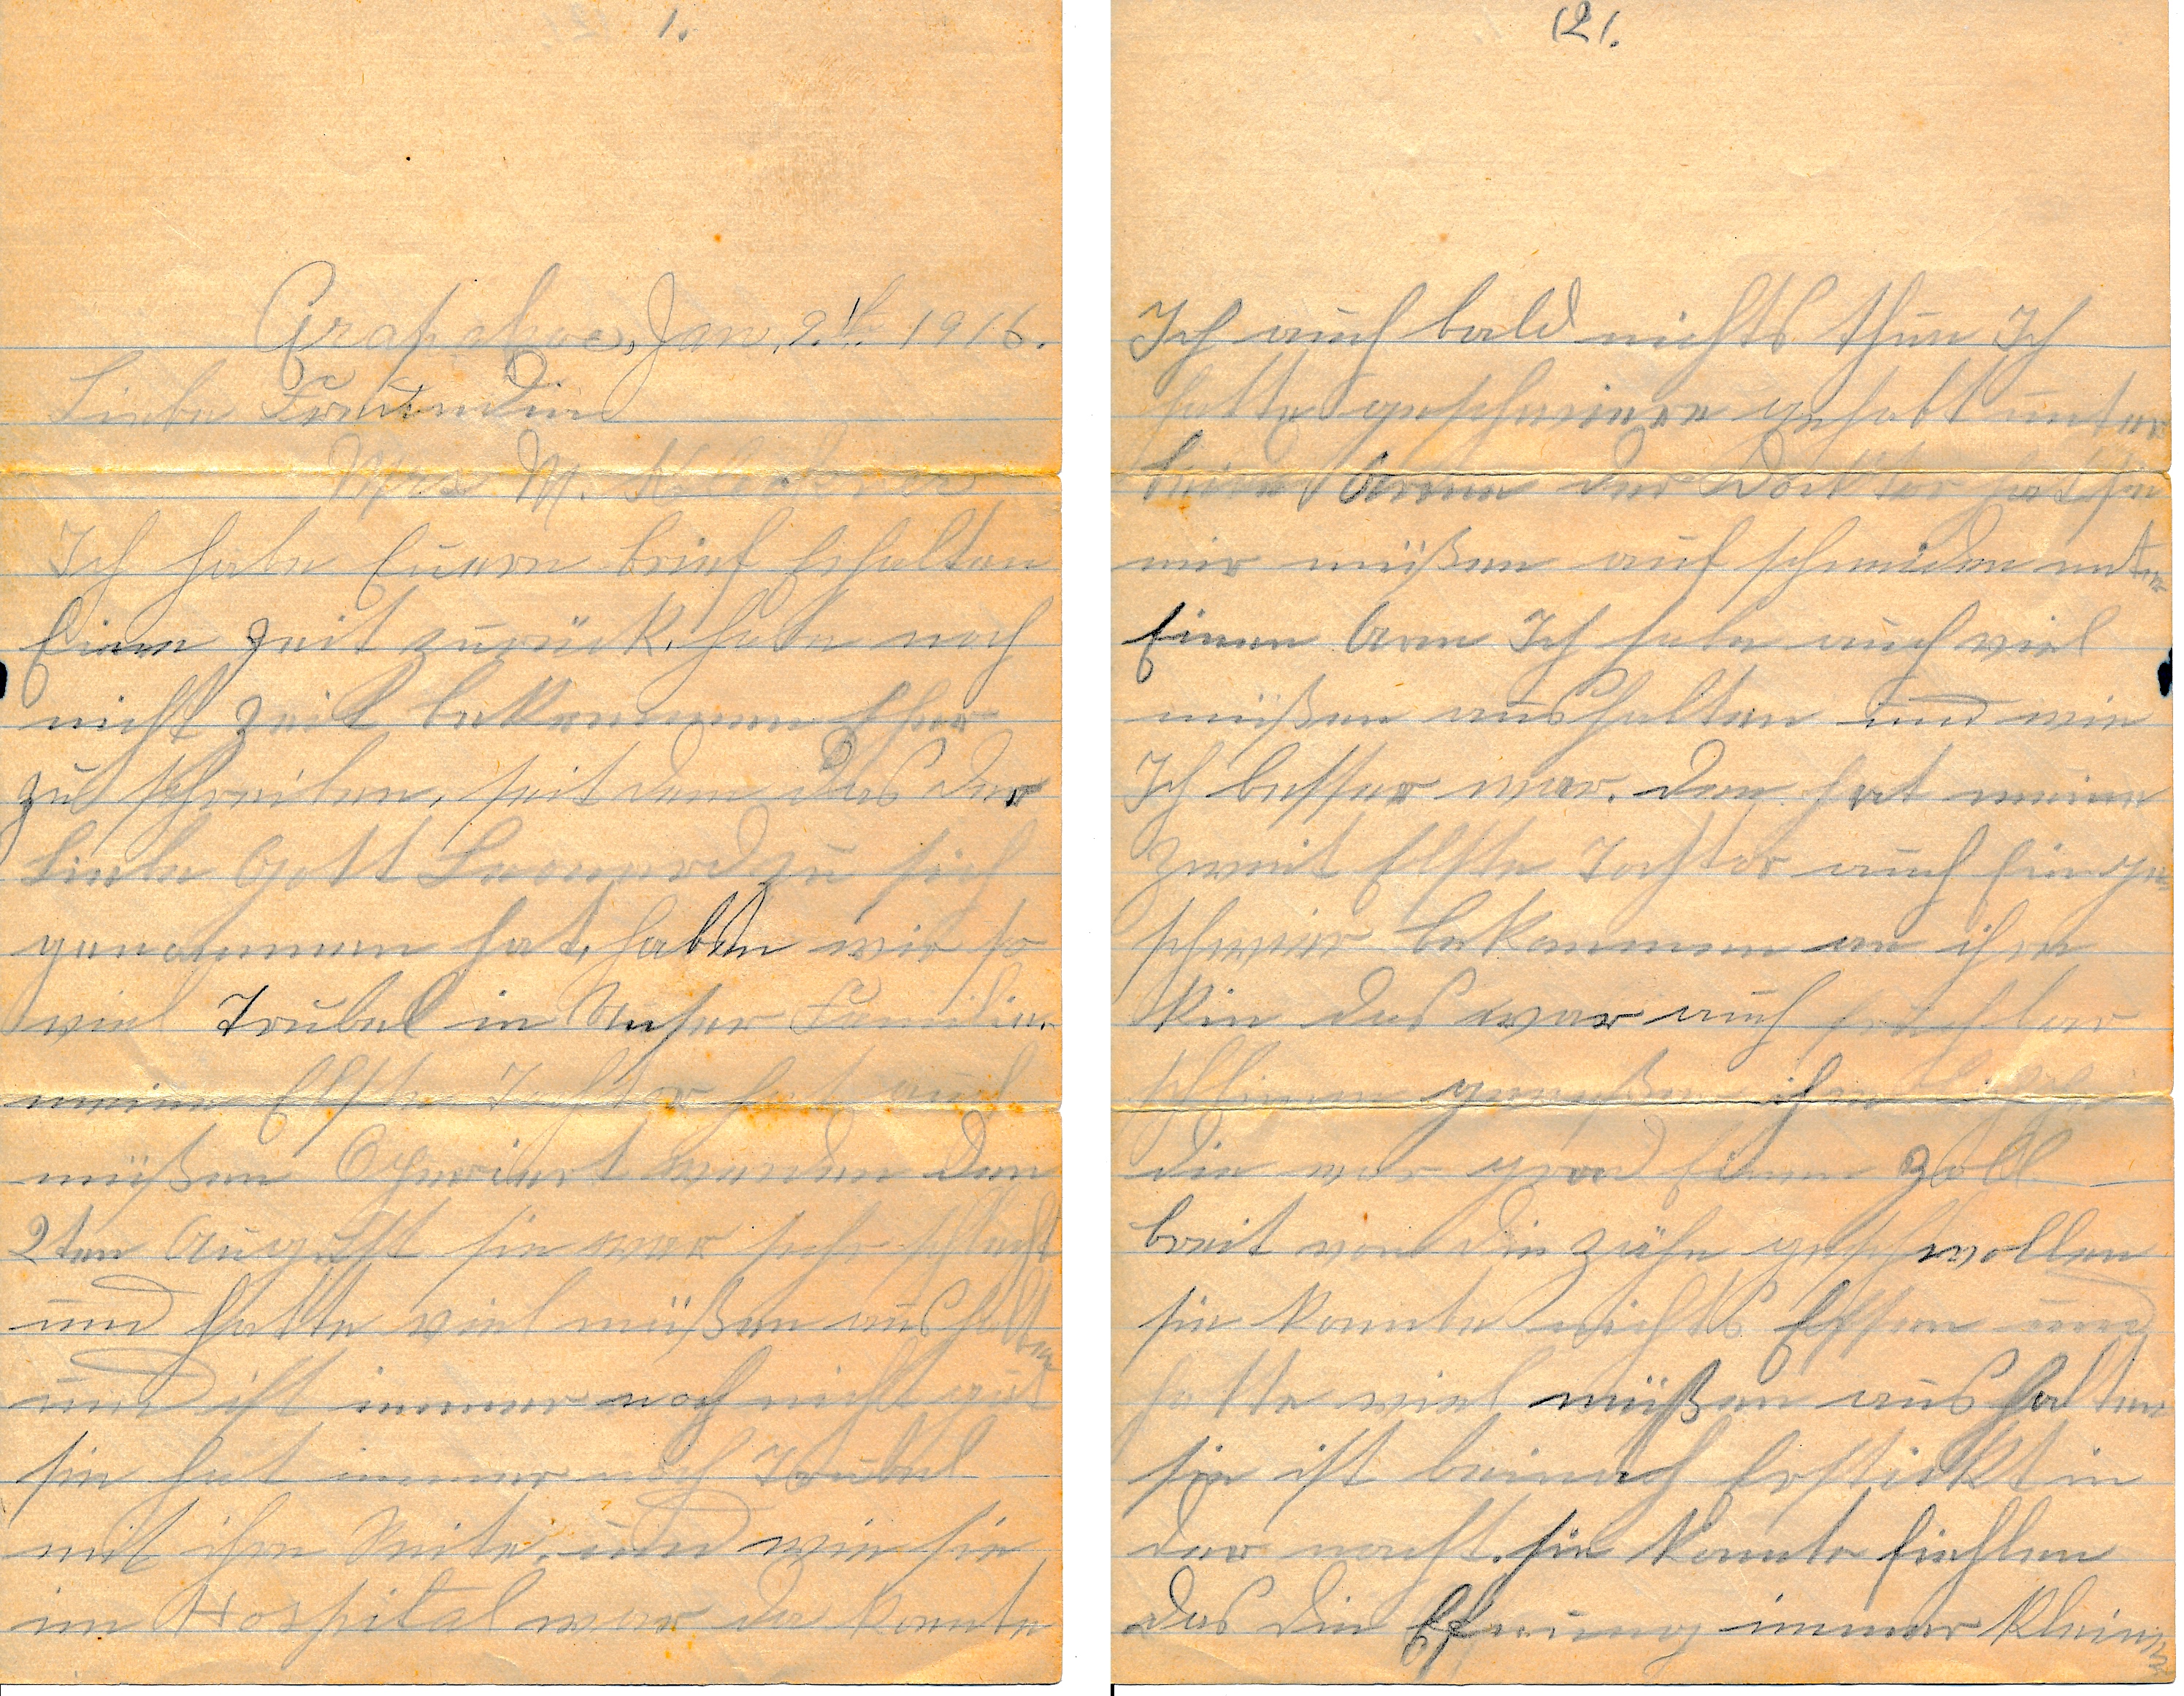 1.
Arapahoe, Jan. 9.th 1916.
Liebe Freundin
Mrs M.
Ich habe Euern brief Erhalten
Eine Zeit zurück. habe noch
nicht Zeit bekommen Eher
zu schreiben. seit dem das der
Liebe Gott Leonard zu sich
genommen hat, haben wir so
viel Trubel in Unser Familie.
meine Elste Tochter hat auch
müßen Operiert werden den
2ten August sie war sehr schlecht
und hatte viel müßen aushalten
und ist immer noch nicht gut
sie hat immer noch Trubel
mit ihre Seite. und wie sie
im Hospital war da konnte
(2).
Ich auch bald nichts thun Ich
hatte geschwiere gehabt unter
beide Arme der Docktor hat sie
mir müßen auf schneiden unter
Einen Arm Ich habe auch viel
müßen aushalten und wie
Ich besser war. den hat meine
Zweit Elste Tochter auch Ein ge-
schwier bekommen an ihre
Kin das war auch furchbar
schlimm gewesen ihre
die war grad Einen Zoll
breit von die zähn geschwollen
sie konnte nichts Essen und
hatte viel müßen aus halten
sie ist beinach Erstickt in
der nacht. sie konnte fiehlen
das die Efnung immer kleiner